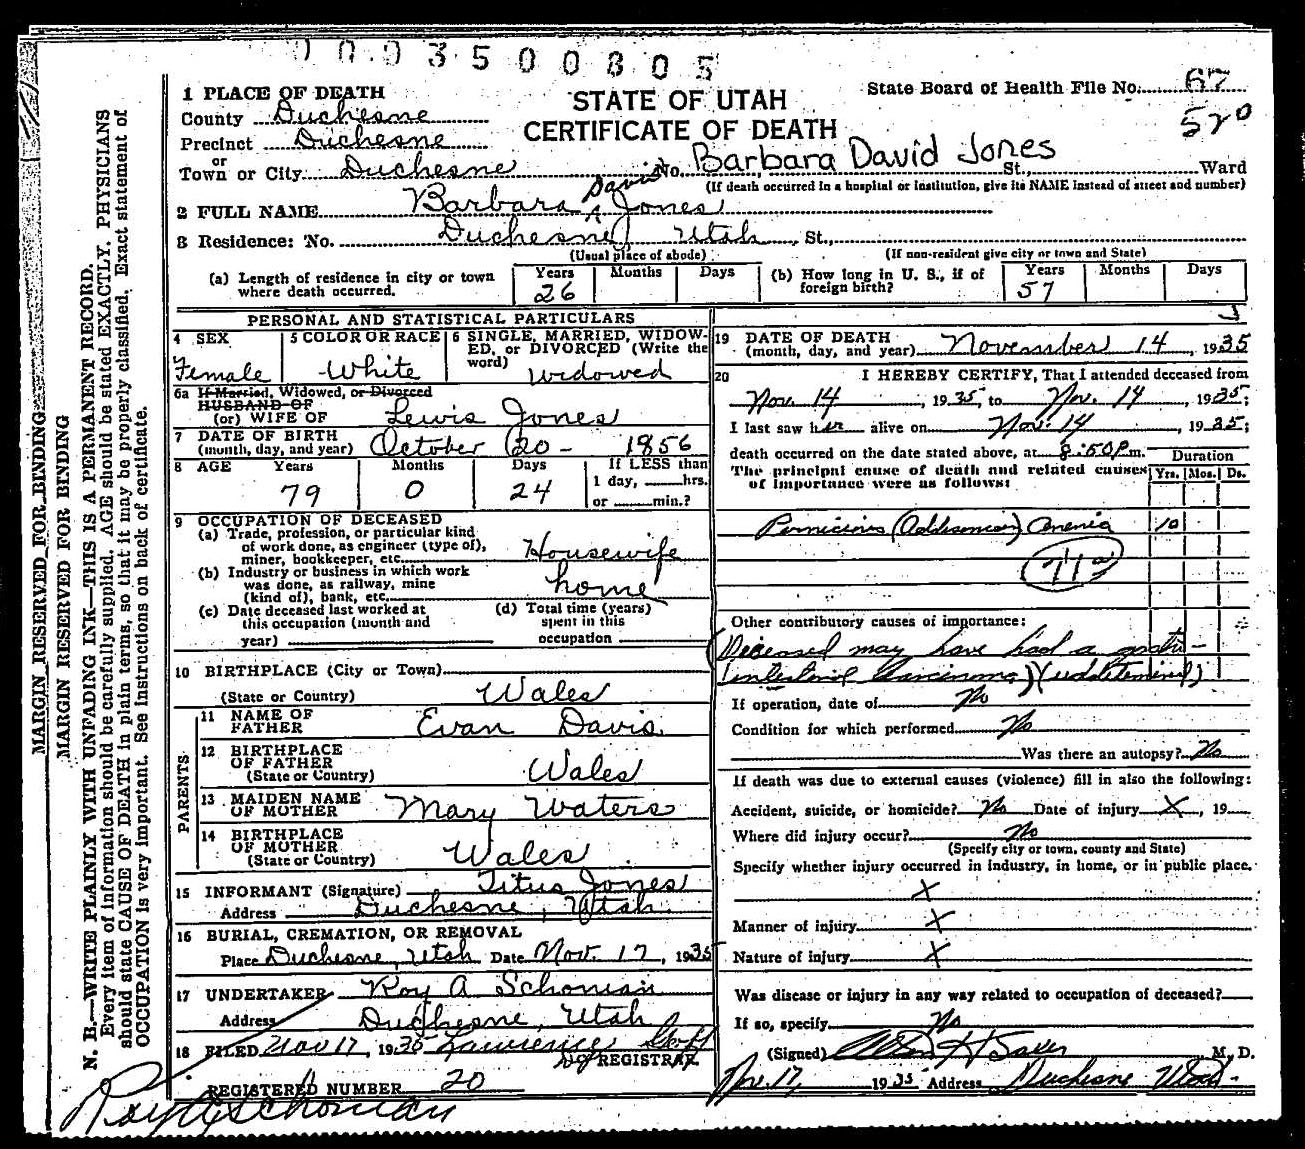 0003500805
STATE OF UTAH
CERTIFICATE OF DEATH
State Board of Health File No. 67
520
1 PLACE OF DEATH
County Duchesne
Precinct Duchesne
or
Town or City Duchesne No. Barbara David Jones St., Ward
(If death occurred in a hospital or institution, give its NAME instead of street and number)
2 FULL NAME Barbara David Jones
3 Residence: No. Duchesne, Utah St.,
(Usual place of abode) (If non-resident give city or town and State)
(a) Length of residence in city or town where death occurred. Years 26 Months Days
(b) How long in U. S., if of foreign birth? Years 57 Months Days
PERSONAL AND STATISTICAL PARTICULARS
4 SEX Female
5 COLOR OR RACE White
6 SINGLE, MARRIED, WIDOWED, or DIVORCED (Write the word) widowed
6a If Married, Widowed, or Divorced
HUSBAND OF
(or) WIFE OF Lewis Jones
7 DATE OF BIRTH
(month, day, and year) October 20 - 1856
8 AGE Years 79 Months 0 Days 24
If LESS than 1 day, hrs. or min.?
9 OCCUPATION OF DECEASED
(a) Trade, profession, or particular kind
of work done, as engineer (type of),
miner, bookkeeper, etc. Housewife
(b) Industry or business in which work
was done, as railway, mine
(kind of), bank, etc. home
(c) Date deceased last worked at
this occupation (month and
year)
(d) Total time (years)
spent in this
occupation
10 BIRTHPLACE (City or Town)
(State or Country) Wales
PARENTS
11 NAME OF FATHER Evan Davis
12 BIRTHPLACE OF FATHER
(State or Country) Wales
13 MAIDEN NAME OF MOTHER Mary Waters
14 BIRTHPLACE OF MOTHER
(State or Country) Wales
15 INFORMANT (Signature) Titus Jones
Address Duchesne, Utah.
16 BURIAL, CREMATION, OR REMOVAL
Place Duchesne, Utah Date Nov. 17, 1935
17 UNDERTAKER Roy A Schonian
Address Duchesne, Utah
18 FILED Nov 17, 1935 Lawrence Goff
REGISTRAR
REGISTERED NUMBER 20
Roy A Schonian
19 DATE OF DEATH
(month, day, and year) November 14, 1935
20 I HEREBY CERTIFY, That I attended deceased from
Nov. 14, 1935, to Nov. 14, 1935;
I last saw her alive on Nov. 14, 1935;
death occurred on the date stated above, at 8:50 P m.
Duration
Yrs. Mos. Ds.
The principal cause of death and related causes
of importance were as follows:
Pernicious (Addisonian) Anemia 10
Other contributory causes of importance:
(Deceased may have had a gastro-
intestinal Carcinoma) (undetermined)
If operation, date of No
Condition for which performed No
Was there an autopsy? No
If death was due to external causes (violence) fill in also the following:
Accident, suicide, or homicide? No Date of injury X, 19
Where did injury occur? No
(Specify city or town, county and State)
Specify whether injury occurred in industry, in home, or in public place.
X
Manner of injury X
Nature of injury X
Was disease or injury in any way related to occupation of deceased?
If so, specify No
(Signed) M. D.
Nov. 17, 1935 Address Duchesne Utah.
MARGIN RESERVED FOR BINDING
MARGIN RESERVED FOR BINDING
N. B.—WRITE PLAINLY WITH UNFADING INK—THIS IS A PERMANENT RECORD.
Every item of information should be carefully supplied. AGE should be stated EXACTLY. PHYSICIANS
should state CAUSE OF DEATH in plain terms, so that it may be properly classified. Exact statement of
OCCUPATION is very important. See instructions on back of certificate.